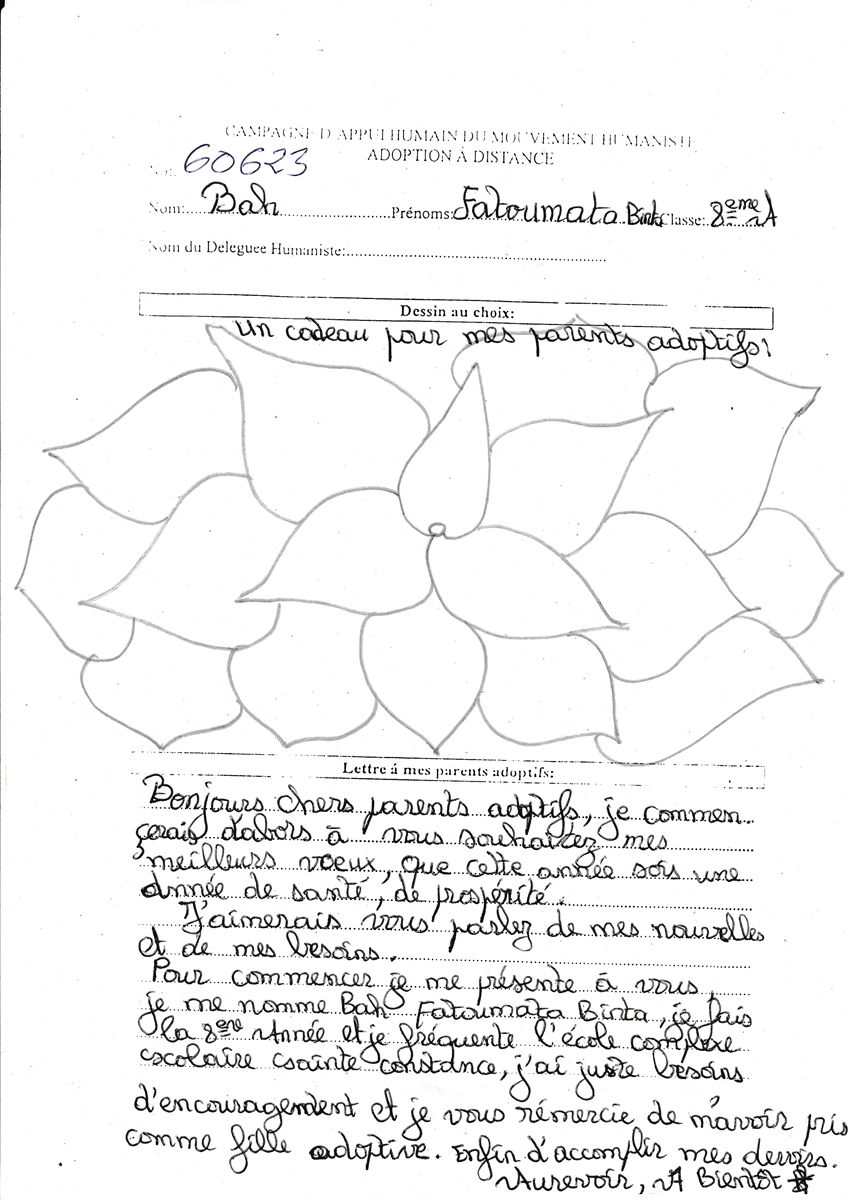 CAMPAGNE D'APPUI HUMAIN DU MOUVEMENT HUMANISTE
ADOPTION Á DISTANCE
No: 60623
Nom: Bah Prénoms: Fatoumata Binta Classe: 8eme A
Nom du Deleguee Humaniste:
Dessin au choix:
un cadeau pour mes parents adoptifs!
Lettre á mes parents adoptifs:
Bonjours chers parents adoptifs, je commen
çerais d'abors à vous souhaitez mes
meilleurs voeux, que cette année sois une
année de santé, de prospérité.
J'aimerais vous parlez de mes nouvelles
et de mes besoins.
Pour commencer je me présente à vous,
je me nomme Bah Fatoumata Binta, je fais
la 8ere Année et je fréquente l'école complexe
scolaire sainte constance, j'ai juste besoins
d'encouragement et je vous rémercie de m'avoir pris
comme fille adoptive. Enfin d'accomplir mes devoirs.
Aurevoir, A Bientôt